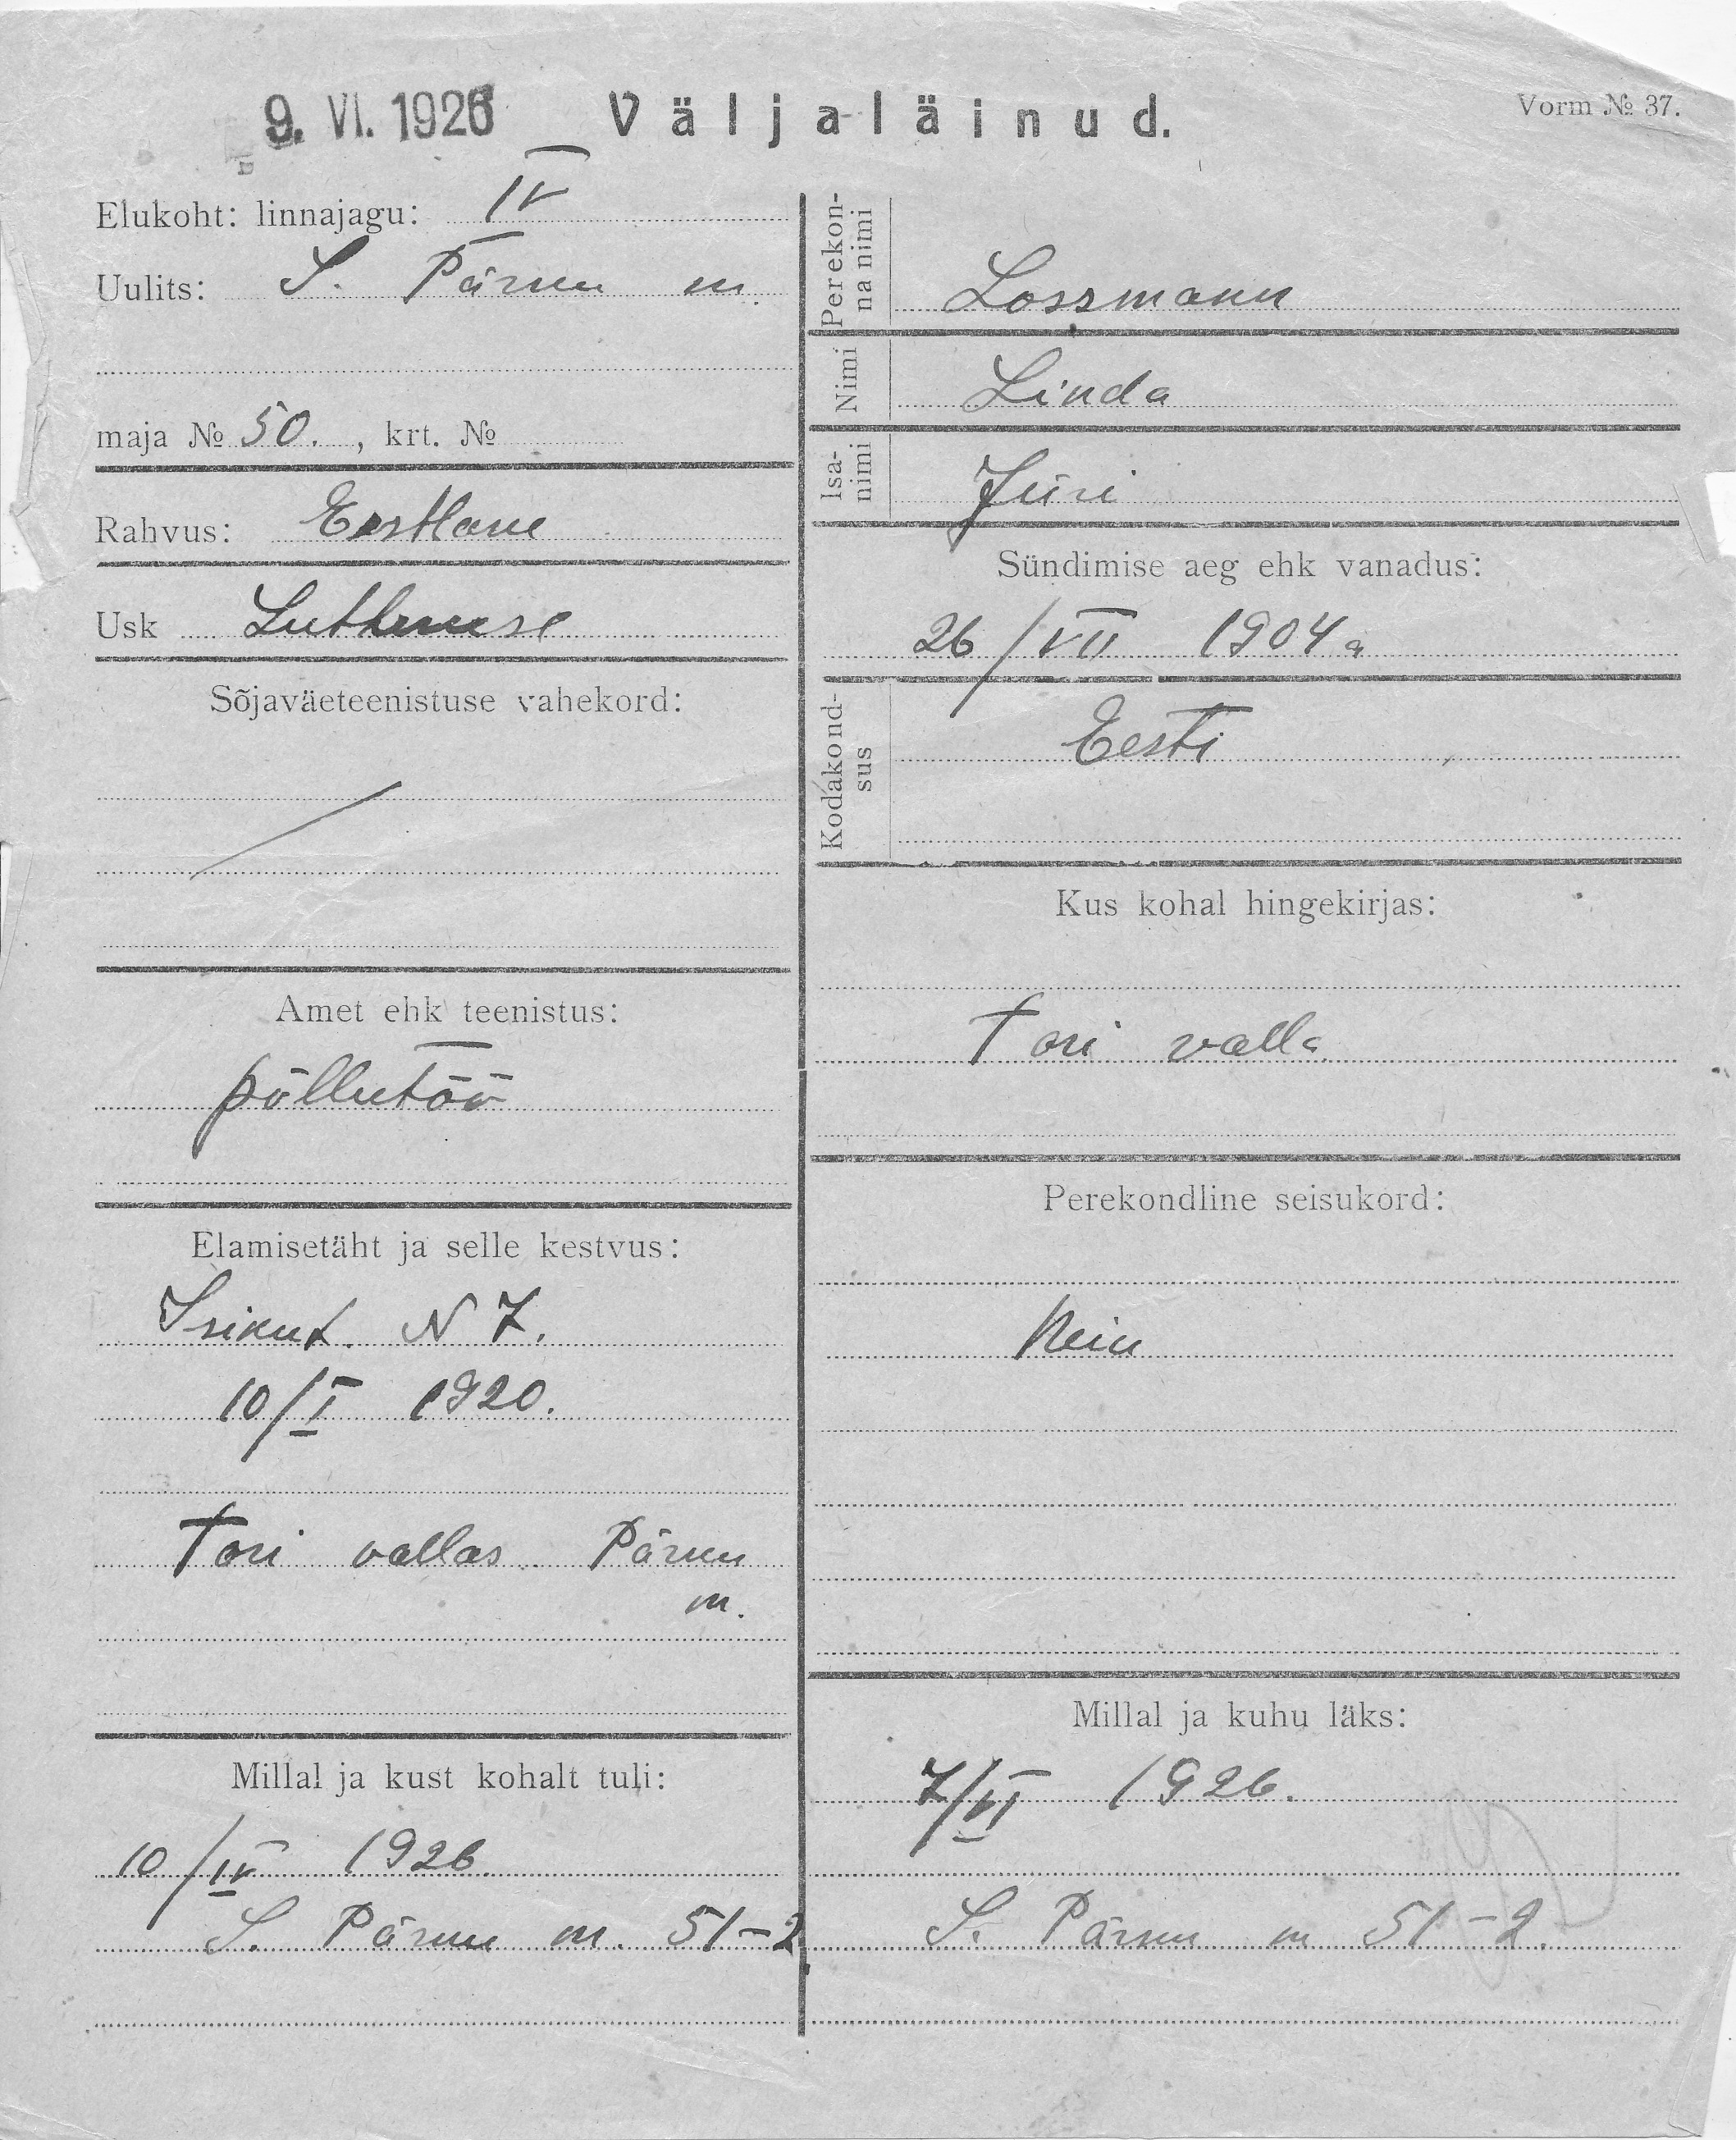 9. VI. 1926 Väljaläinud. Vorm № 37.
Elukoht: linnajagu: IV
Uulits: S. Pärnu m.
maja № 50. , krt. №
Rahvus: Eestlane
Usk Lutheruse
Sõjaväeteenistuse vahekord:
Amet ehk teenistus:
põllutöö
Elamisetäht ja selle kestvus:
Isikut. N 7.
10/I 1920.
Tori vallas Pärnu
m.
Millal ja kust kohalt tuli:
10/IV 1926.
S. Pärnu m. 51-2
Perekon-
na nimi
Lossmann
Nimi
Linda
Isa-
nimi
Jüri
Sündimise aeg ehk vanadus:
26/VII 1904 a
Kodakond-
sus
Eesti
Kus kohal hingekirjas:
Tori valla
Perekondline seisukord:
Neiu
Millal ja kuhu läks:
7/VI 1926.
S. Pärnu m 51-2.